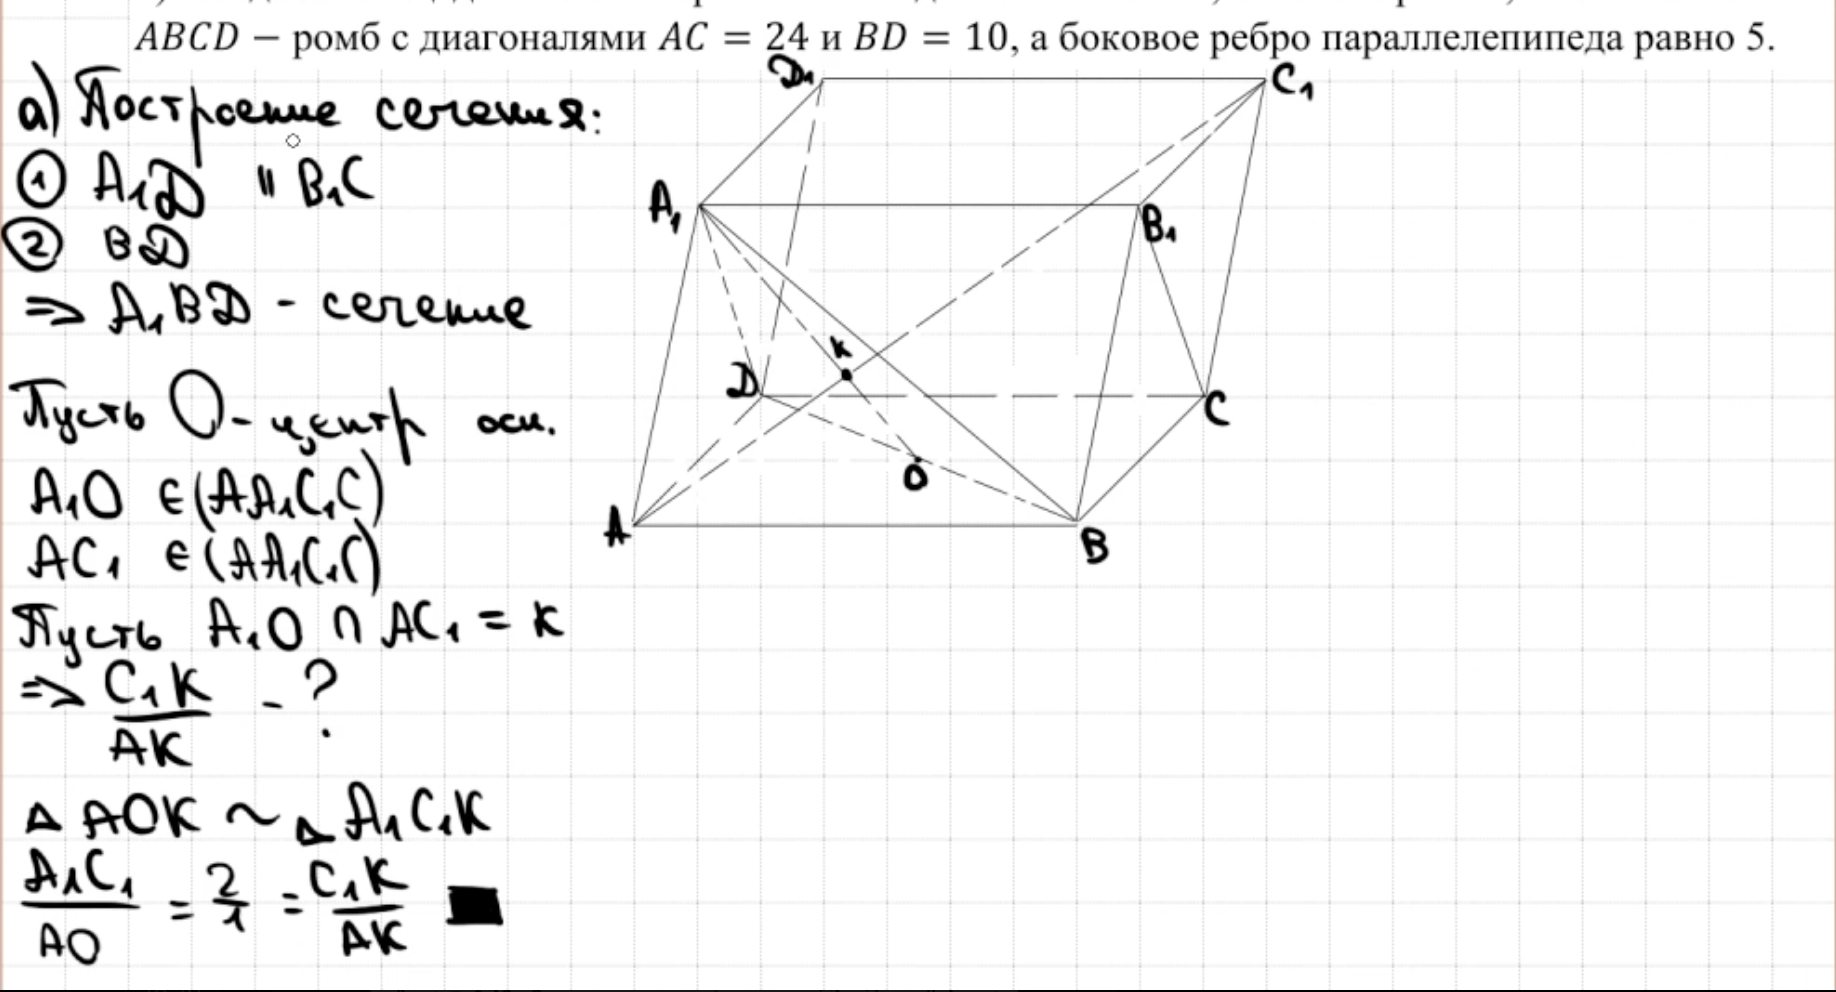 ABCD – ромб с диагоналями AC = 24 и BD = 10, а боковое ребро параллелепипеда равно 5.
а) Построение сечения:
① A₁D || B₁C
② BD
⇒ A₁BD - сечение
Пусть O - центр осн.
A₁O ∈ (AA₁C₁C)
AC₁ ∈ (AA₁C₁C)
Пусть A₁O ∩ AC₁ = K
⇒ C₁K / AK - ?
△ AOK ~ △ A₁C₁K
A₁C₁ / AO = 2/1 = C₁K / AK ■
D₁
C₁
A₁
B₁
K
D
C
O
A
B